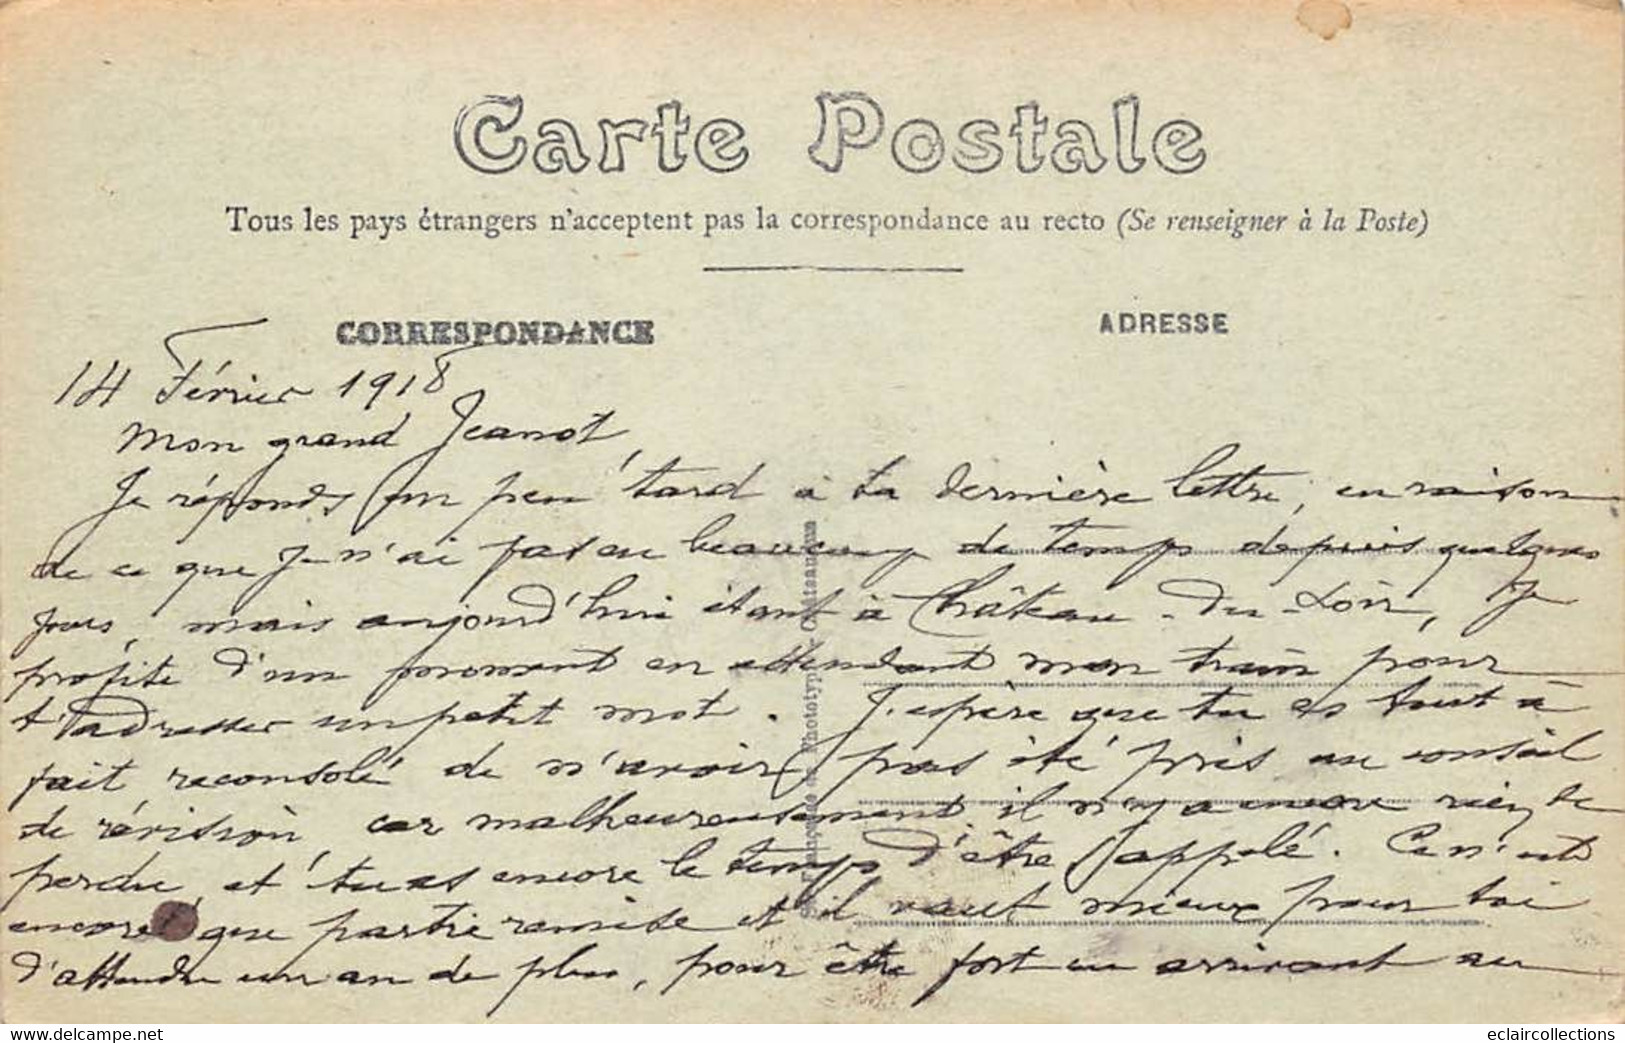 Carte Postale
Tous les pays étrangers n'acceptent pas la correspondance au recto (Se renseigner à la Poste)
CORRESPONDANCE
ADRESSE
14 Février 1918
Mon grand Jeanot,
Je réponds un peu tard à ta dernière lettre, en raison
de ce que je n'ai pas eu beaucoup de temps depuis quelques
jours, mais aujourd'hui étant à Château-du-Loir, je
profite d'un moment en attendant mon train pour
t'adresser un petit mot. J'espère que tu es tout à
fait reconsolé de n'avoir pas été pris au conseil
de révision, car malheureusement il n'y a encore rien de
perdu, et tu as encore le temps d'être appelé. Ce n'est
encore que partie remise et il vaut mieux pour toi
d'attendre un an de plus, pour être fort en arrivant au
Phototypie
www.delcampe.net
eclaircollections